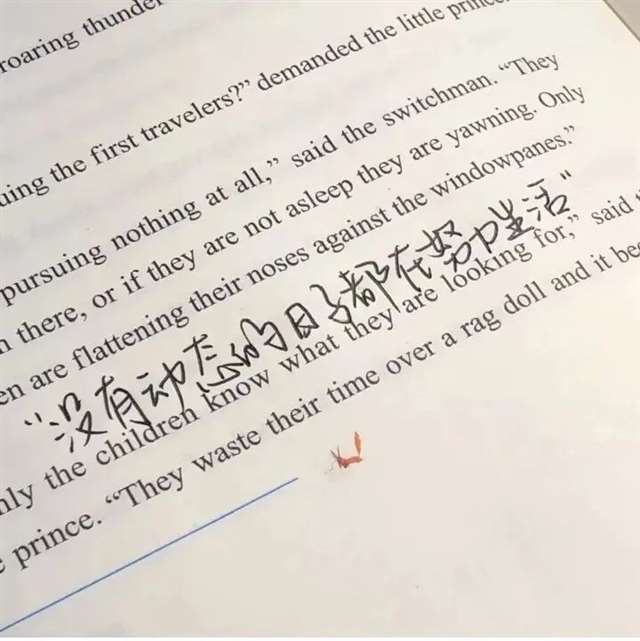 roaring thunder
uing the first travelers?” demanded the little prince.
pursuing nothing at all,” said the switchman. “They
there, or if they are not asleep they are yawning. Only
en are flattening their noses against the windowpanes.”
“没有动态的日子都在努力生活”
nly the children know what they are looking for,” said
prince. “They waste their time over a rag doll and it